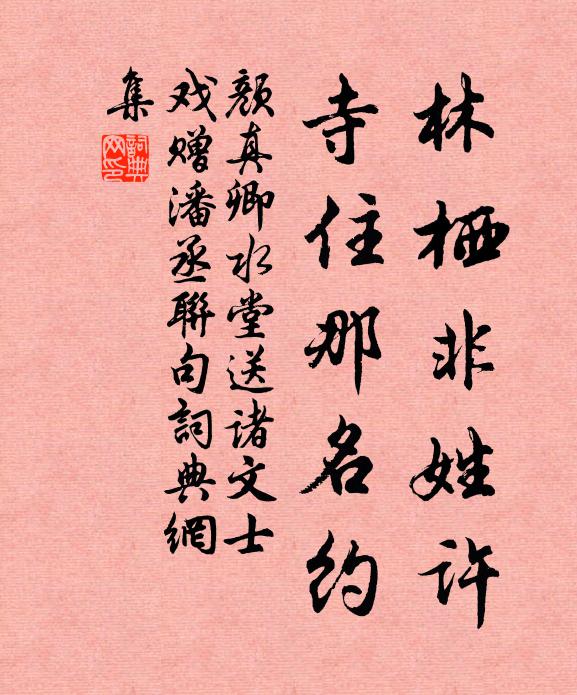 林栖非姓许
寺住那名约
颜真卿水堂送诸文士
戏赠潘丞聯句詞典網
集
詞典網印